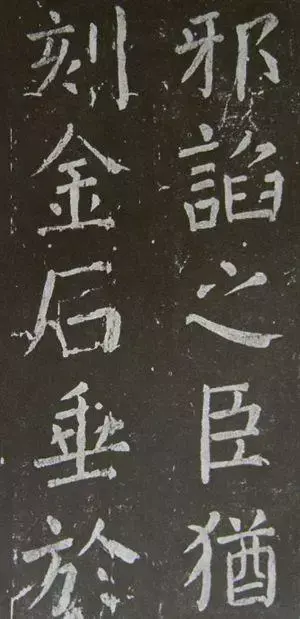 邪諂之臣猶
刻金石垂於